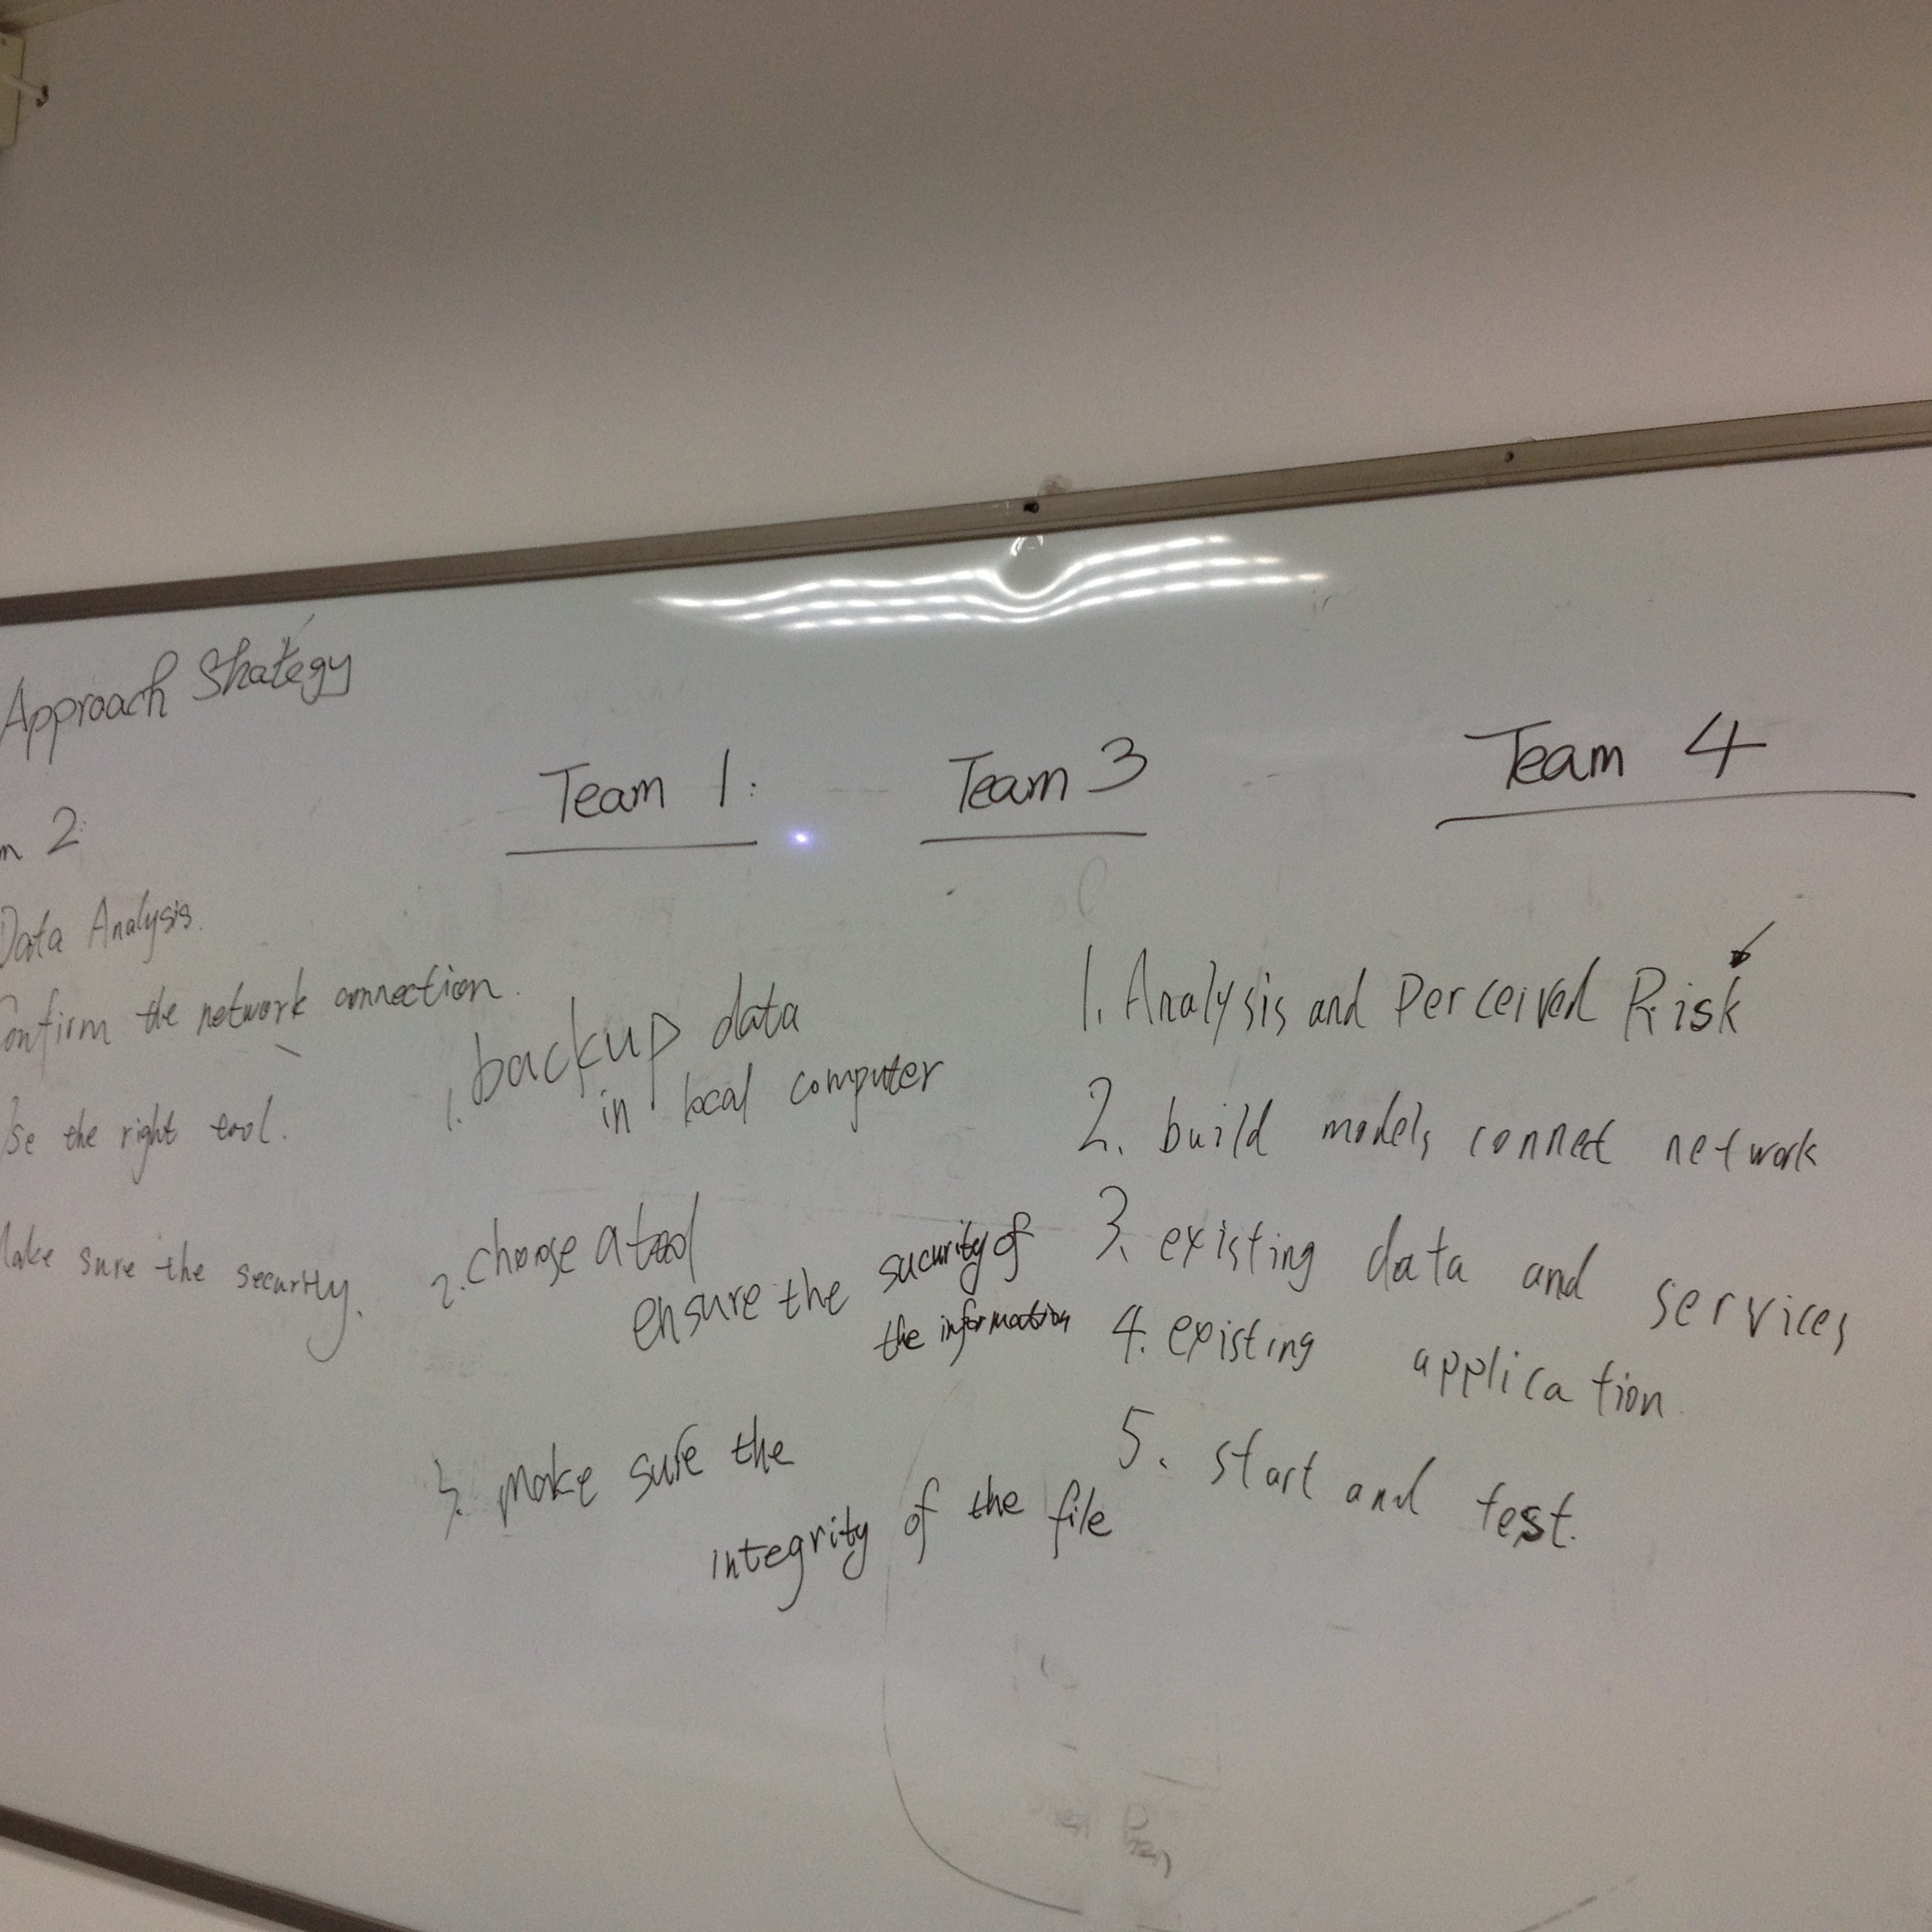 Approach Strategy
2:
Data Analysis.
Confirm the network connection.
Use the right tool.
Make sure the security.
Team 1:
1. backup data
in local computer
2. choose a tool
ensure the sucurity of
the information
3. make sure the
integrity of the file
Team 3
Team 4
1. Analysis and Perceived Risk
2. build models connet network
3. existing data and services
4. existing application
5. start and test.